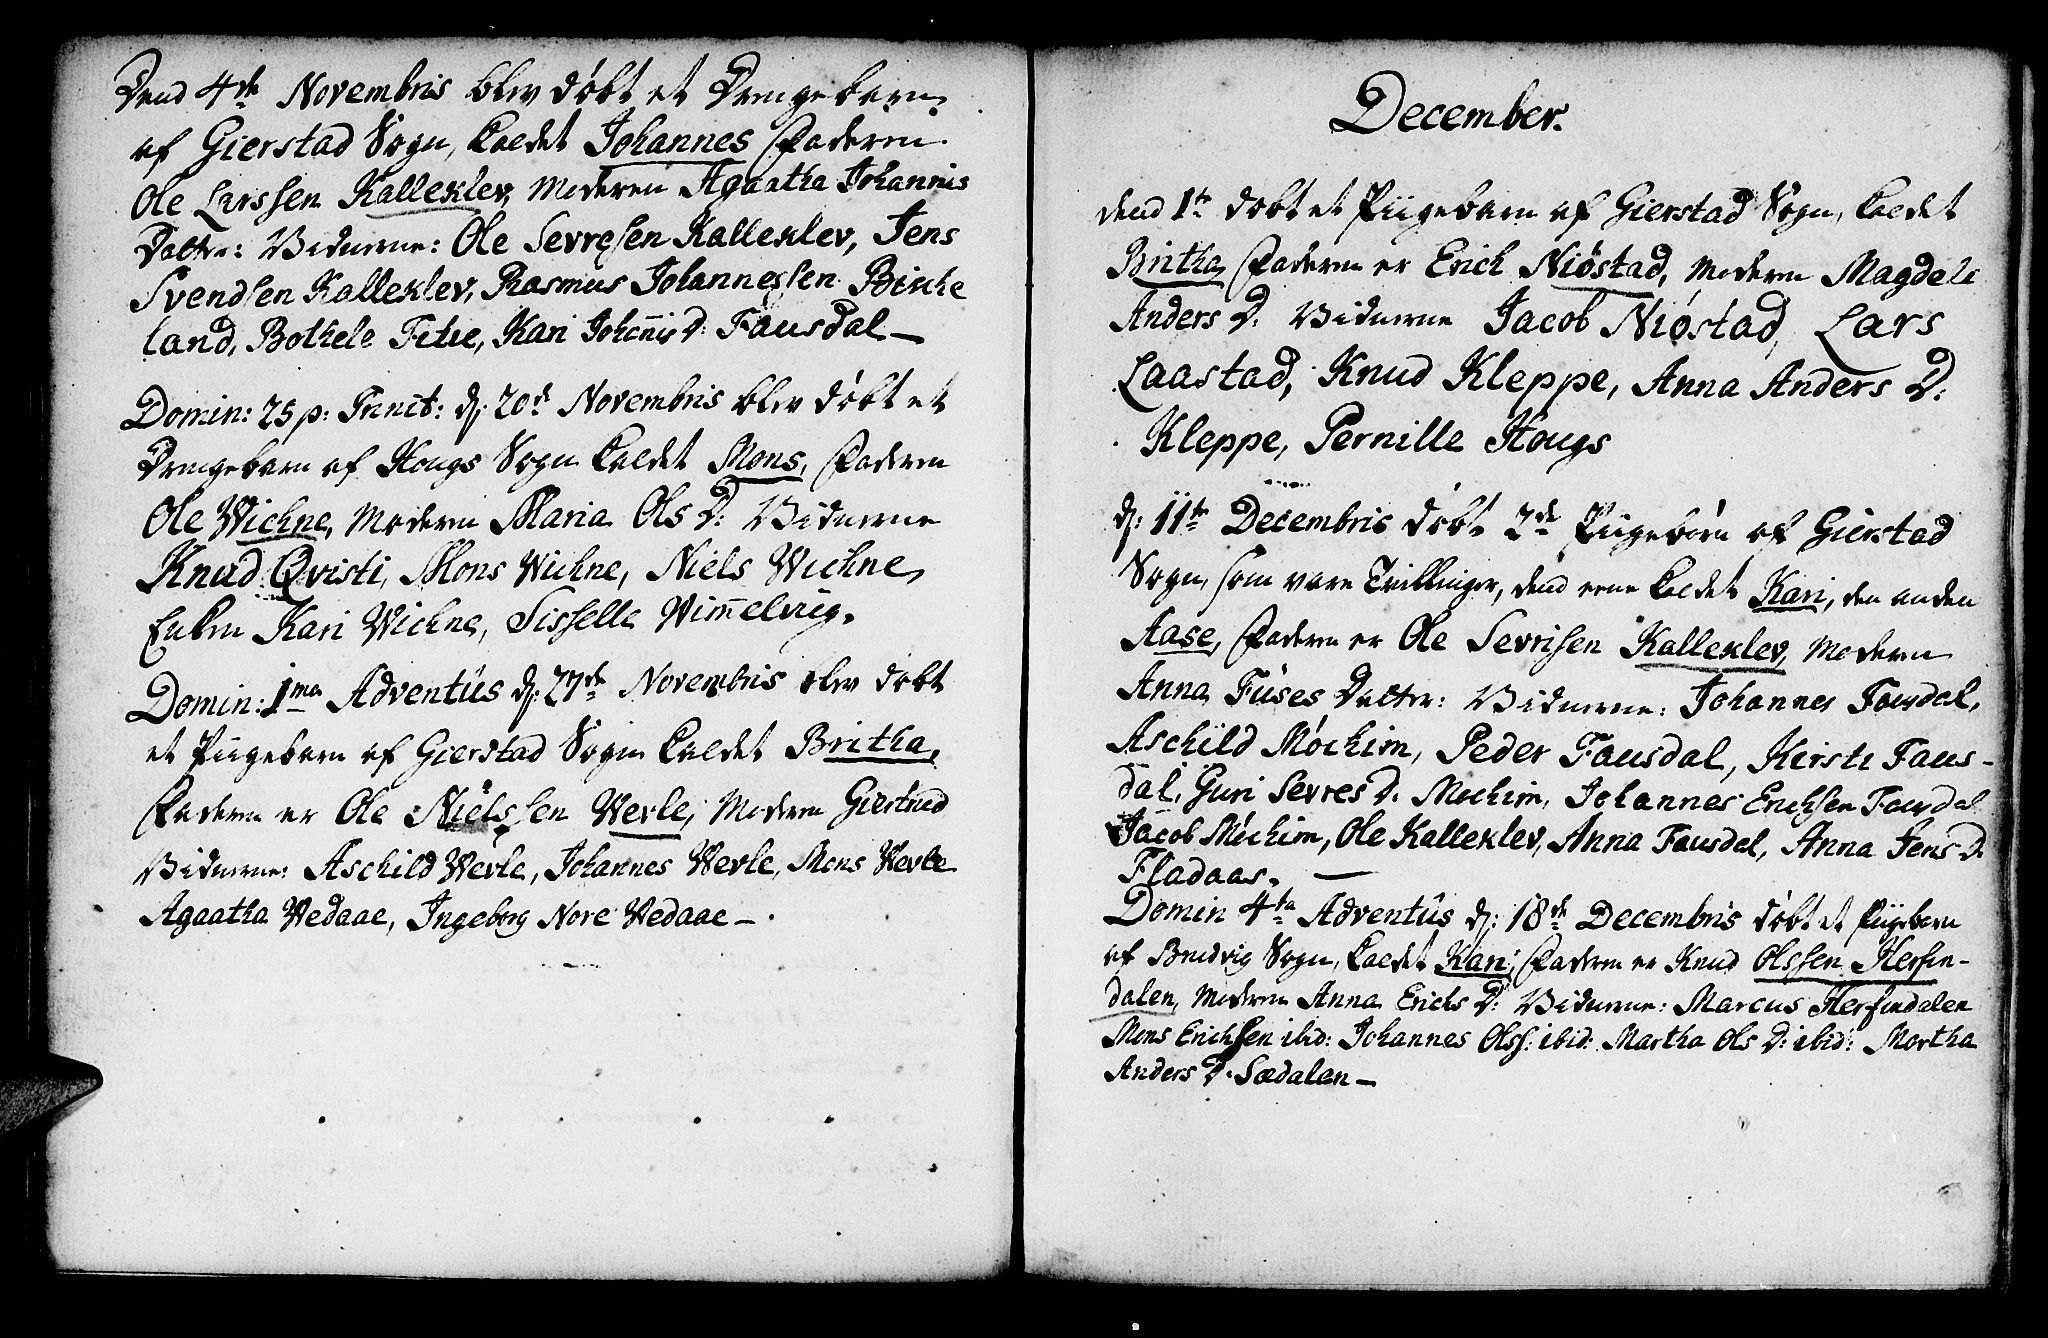 Dend 4de Novembris blev døbt et Drengebarn
af Gierstad Sogn, kaldet Johannes Faderen
Ole Larssen Kalleklev, Moderen Agaatha Johannis
Dotter: Vidnerne: Ole Sevresen Kalleklev, Jens
Svendsen Kalleklev, Rasmus Johannessen Birke
land, Bothele Titie, Kari Johannis D: Fausdal -
Domin: 25 p: Trinit: d: 20de Novembris blev døbt et
Drengebarn af Hougs Sogn kaldet Mons, Faderen
Ole Wichne, Moderen Maria Ols D: Vidnerne
Knud Qvisti, Mons Wichne, Niels Wichne,
Enken Kari Wichne, Sisselle Wimmelvig.
Domin: 1ma Adventûs d: 27de Novembris blev døbt
et Piigebarn af Gierstad Sogn kaldet Britha,
Faderen er Ole Nielssen Werle, Moderen Giertrud
Vidnerne: Aschild Werle, Johannes Werle, Mons Werle
Agaatha Wedaae, Ingeborg Nore Wedaae -
December.
dend 1te døbt et Piigebarn af Gierstad Sogn, kaldet
Britha, Faderen er Erich Niøstad, Moderen Magdele
Anders D: Vidnerne Jacob Niøstad, Lars
Laastad, Knud Kleppe, Anna Anders D:
Kleppe, Pernille Hougs
d: 11te Decembris døbt 2de Piigebørn af Gierstad
Sogn, som vare Tvillinger, dend eene kaldet Kari, den anden
Aase, Faderen er Ole Sevrisen Kalleklev, Moderen
Anna Fuses Datter: Vidnerne: Johannes Fausdal,
Aschild Møchim, Peder Fausdal, Kirsti Faus-
dal, Guri Sevres D. Møchim, Johannes Erichsen Fausdal
Jacob Møchim, Ole Kalleklev, Anna Fausdal, Anna Jens D.
Fladaas. -
Domin 4ta Adventûs d: 18de Decembris døbt et Piigebarn
af Bredvig Sogn, kaldet Kari, Faderen er Knud Olssen Herfin-
dalen, Moderen Anna Erichs D: Vidnerne: Marcus Herfindalen
Mons Erichsen ibid: Johannes Olss: ibid: Martha Ols D: ibid: Martha
Anders D. Sædalen -